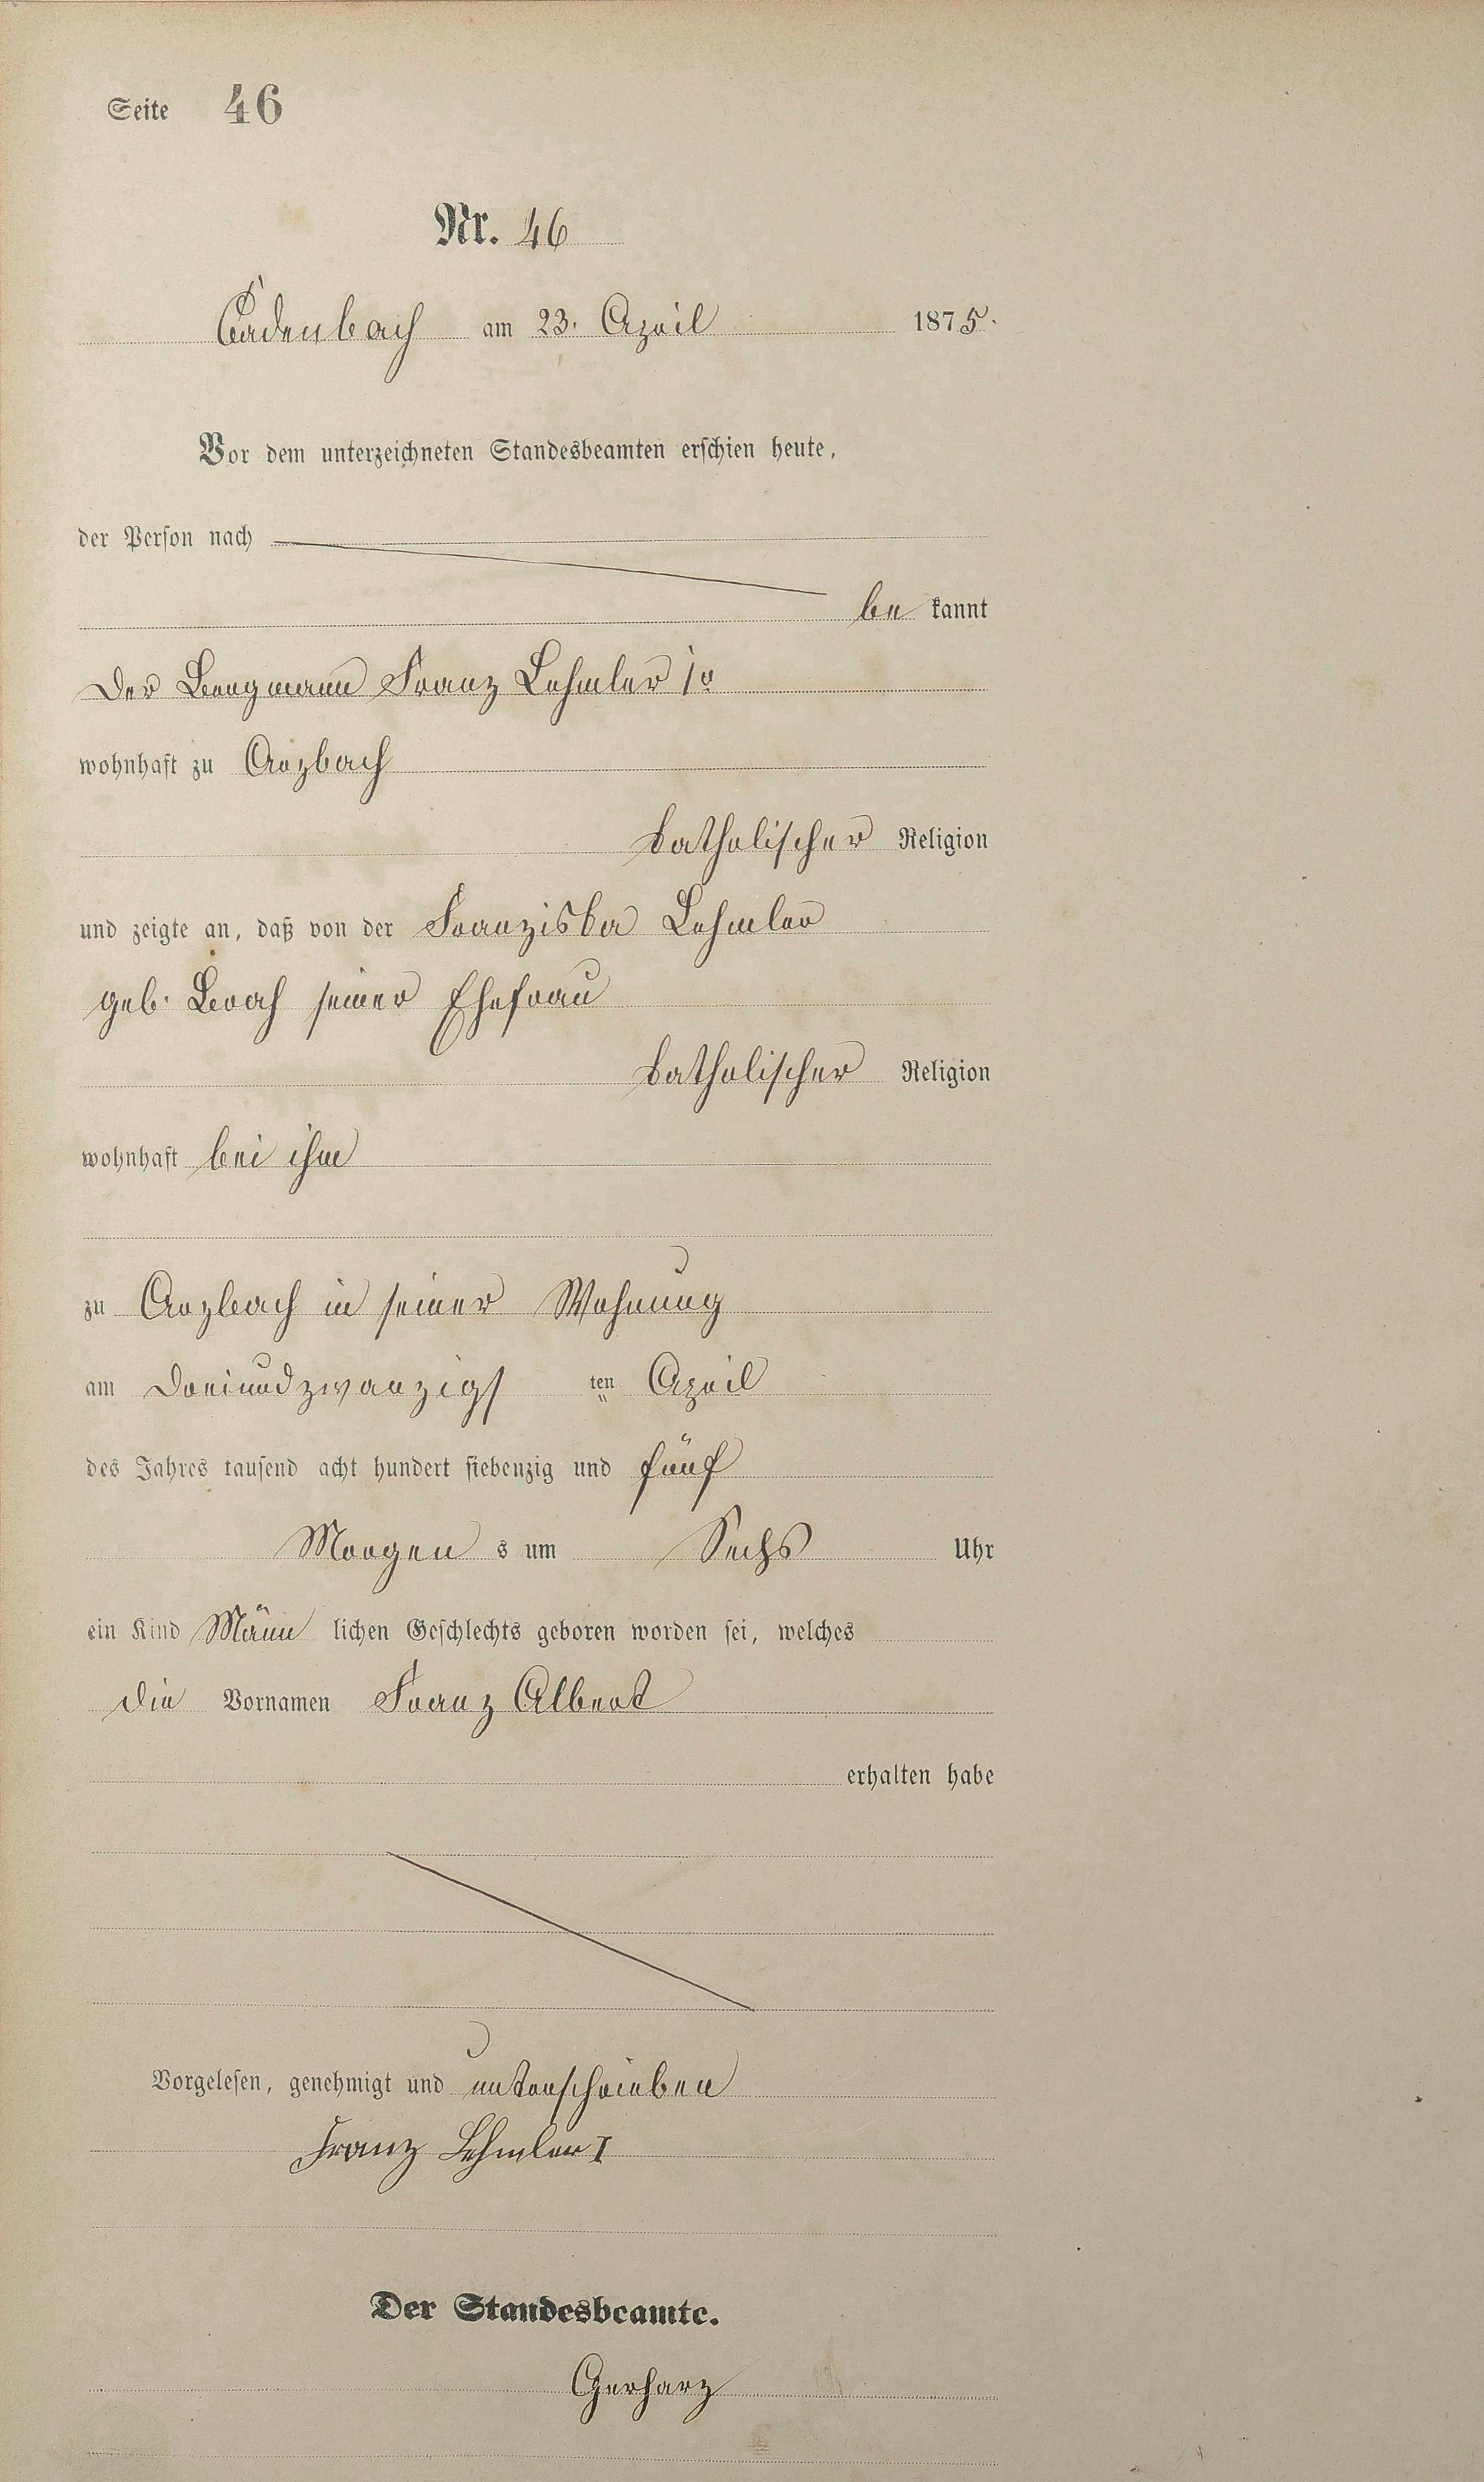 Seite 46
Nr. 46
Cadenbach am 23. April 1875.
Vor dem unterzeichneten Standesbeamten erschien heute,
der Person nach
be kannt
Der Bergmann Franz Lehmler 1r
wohnhaft zu Arzbach
katholischer Religion
und zeigte an, daß von der Franziska Lehmler
geb. Bach seiner Ehefrau
katholischer Religion
wohnhaft bei ihm
zu Arzbach in seiner Wohnung
am Dreiundzwanzigs ten April
des Jahres tausend acht hundert siebenzig und fünf
Morgen s um Sechs Uhr
ein Kind Männ lichen Geschlechts geboren worden sei, welches
die Vornamen Franz Albert
erhalten habe
Vorgelesen, genehmigt und unterschrieben
Franz Lehmler I
Der Standesbeamte.
Gerharz